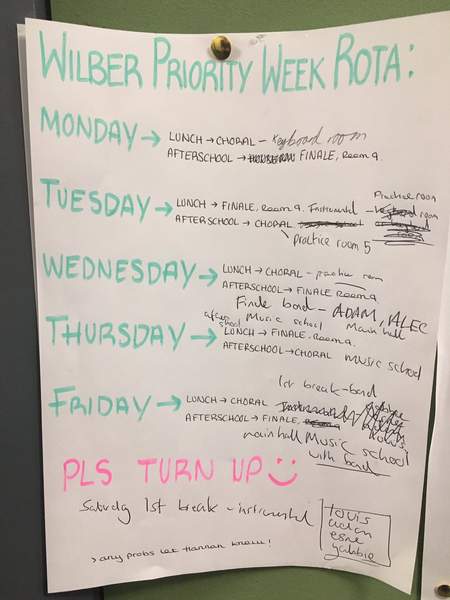 WILBER PRIORITY WEEK ROTA:
MONDAY → LUNCH → CHORAL - Keyboard room
AFTERSCHOOL → FINALE, Room 9.
Practice room
TUESDAY → LUNCH → FINALE, Room 9. Instrumental - room
AFTERSCHOOL → CHORAL
practice room 5
WEDNESDAY → LUNCH → CHORAL - practice room
AFTERSCHOOL → FINALE Room 9
Finale band - ADAM, ALEC
after school Music school Main hall
THURSDAY → LUNCH → FINALE, Room 9.
AFTERSCHOOL → CHORAL music school
1st break - band
FRIDAY → LUNCH → CHORAL
AFTERSCHOOL → FINALE,
main hall Music school
with band
PLS TURN UP
Saturday 1st break - instrumental
louis
aidan
esme
gabbie
> any probs let Hannah know!